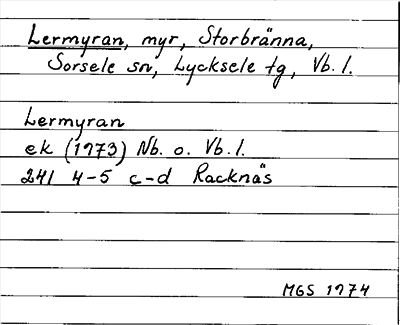 Lermyran, myr, Storbränna,
Sorsele sn, Lycksele tg, Vb. l.
Lermyran
ek (1973) Nb. o. Vb. l.
241 4-5 c-d Racknäs
MGS 1974